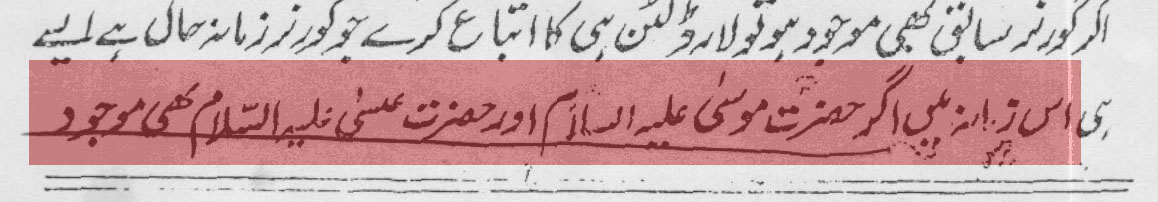 اگر گورنر سابق بھی موجود ہو تو لارڈ لٹن ہی کا اتباع کرے جو گورنر زمانہ حال ہے ایسے
ہی اس زمانہ میں اگر حضرت موسیٰ علیہ السلام اور حضرت عیسیٰ علیہ السّلام بھی موجود